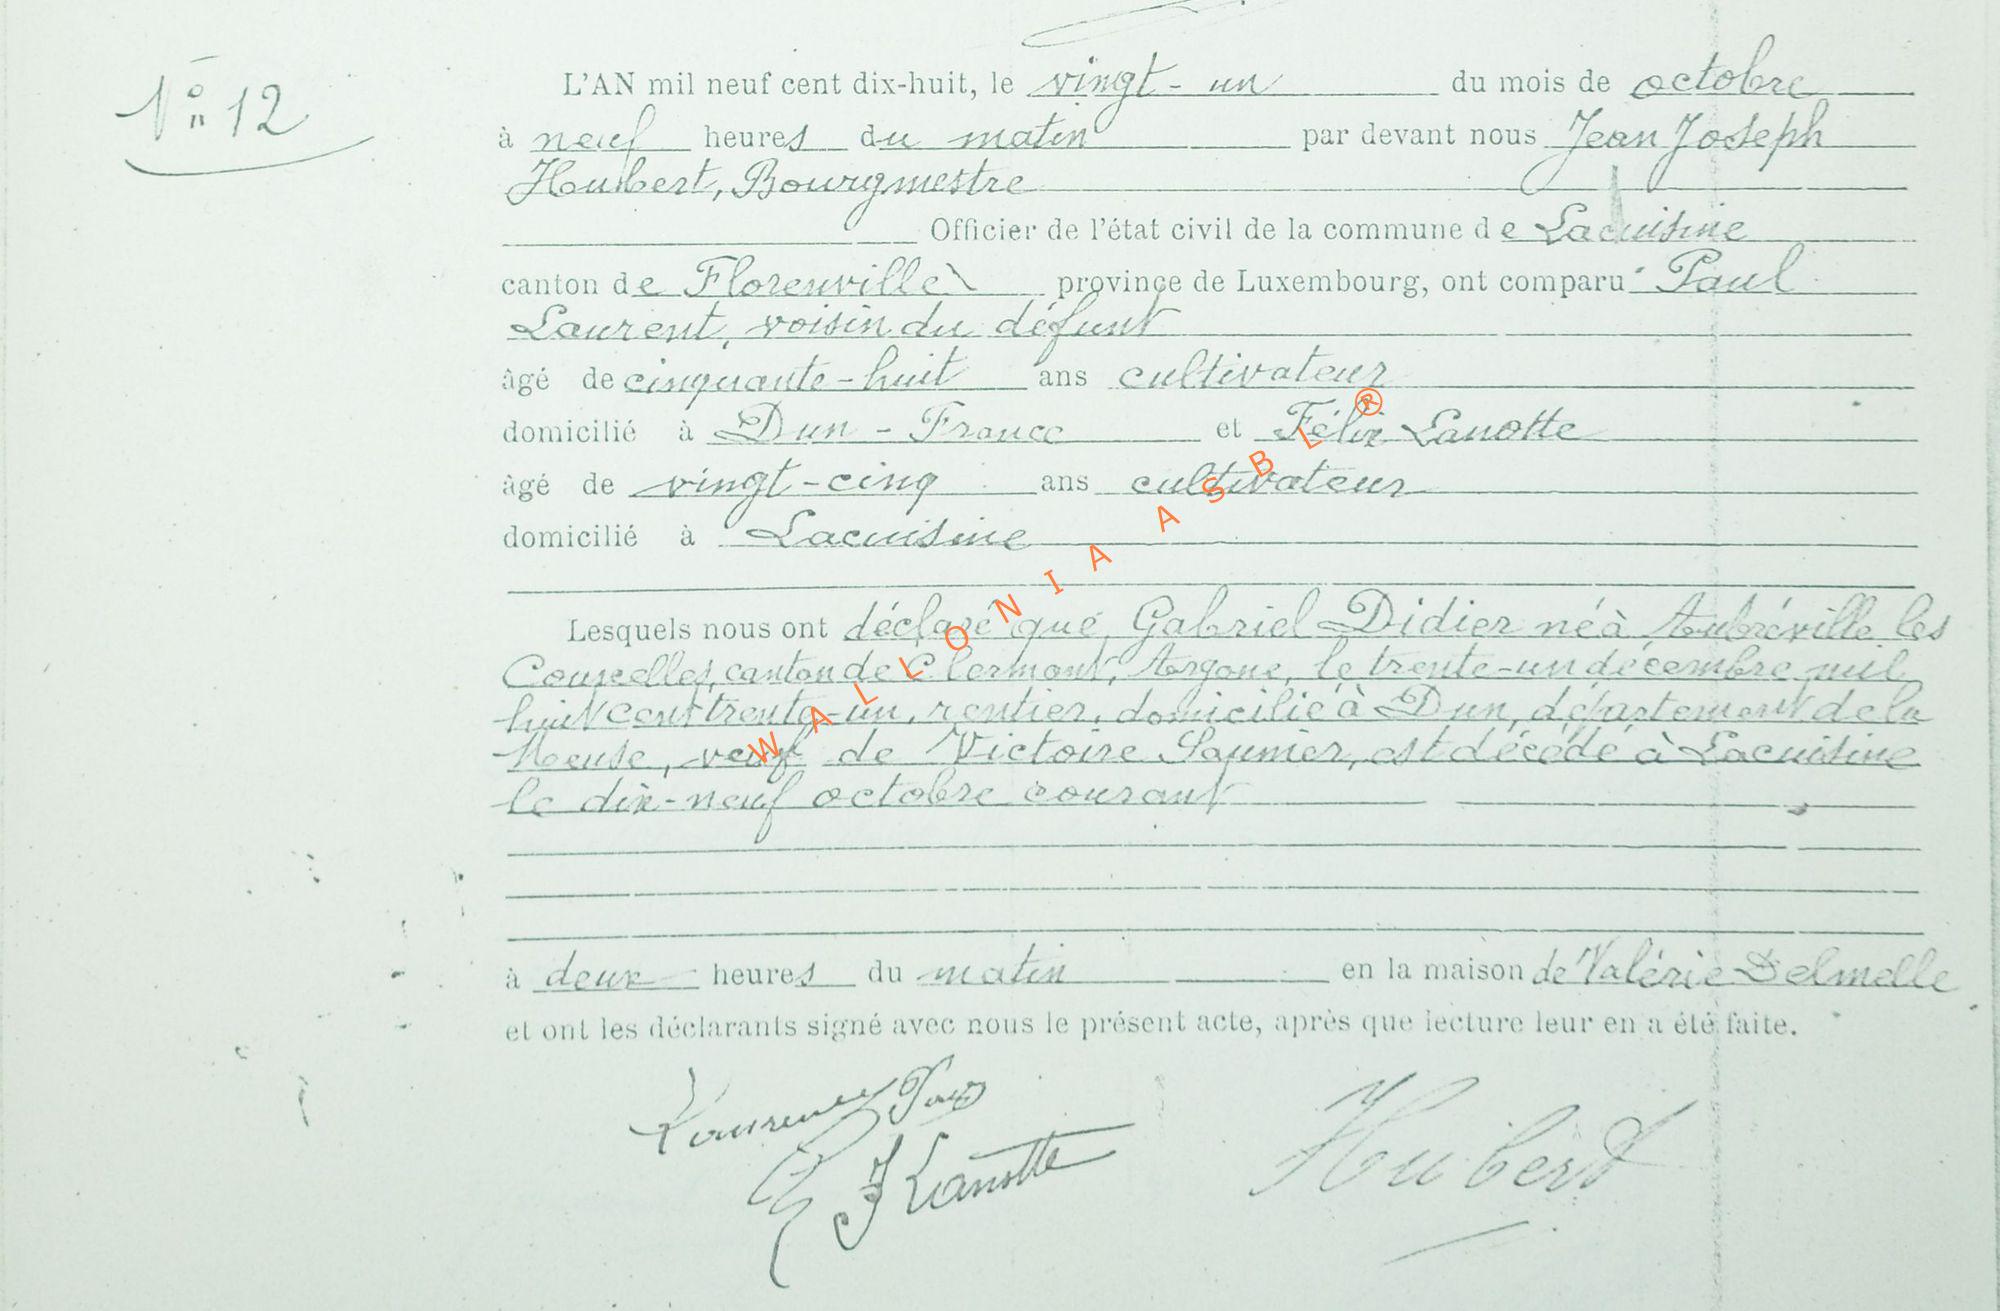 N° 12
L'AN mil neuf cent dix-huit, le vingt-un du mois de octobre
à neuf heures du matin par devant nous Jean Joseph
Hubert, Bourgmestre
Officier de l'état civil de la commune de Lacuisine
canton de Florenville province de Luxembourg, ont comparu Paul
Laurent, voisin du défunt
âgé de cinquante-huit ans cultivateur
domicilié à Dun - France et Félix Lanotte
âgé de vingt-cinq ans cultivateur
domicilié à Lacuisine
Lesquels nous ont déclaré que Gabriel Didier né à Aubréville les
Courcelles, canton de Clermont, Argone, le trente-un décembre mil
huit cent trente-un, rentier, domicilié à Dun, département de la
Meuse, veuf de Victoire Saunier, est décédé à Lacuisine
le dix-neuf octobre courant
à deux heures du matin en la maison de Valérie Delmelle
et ont les déclarants signé avec nous le présent acte, après que lecture leur en a été faite.
Laurent Paul
F Lanotte
Hubert
WALLONIA ASBL ®